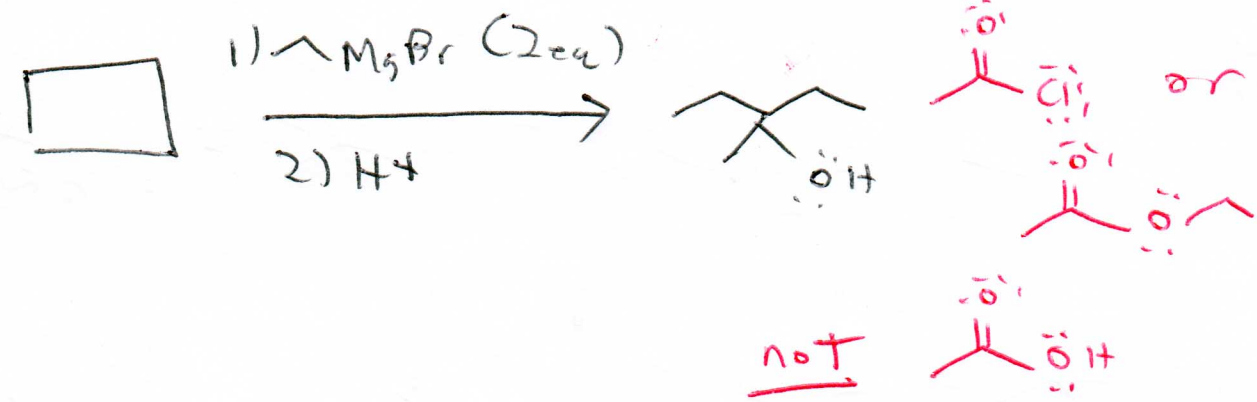 1) MgBr (2eq)
2) H+
ÖH
O
Cl
or
O
O
not
O
OH